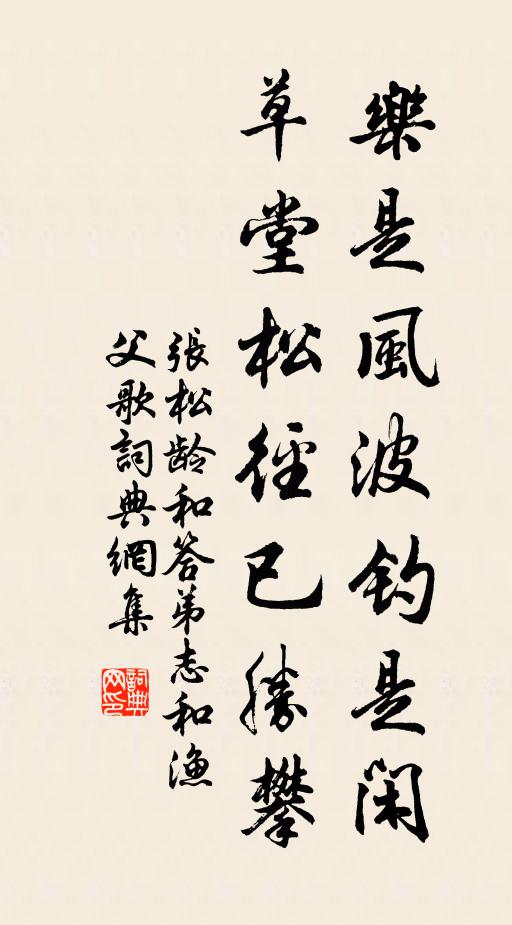 樂是風波釣是閑
草堂松徑已勝攀
張松龄和答弟志和漁
父歌詞典網集
詞典
网印